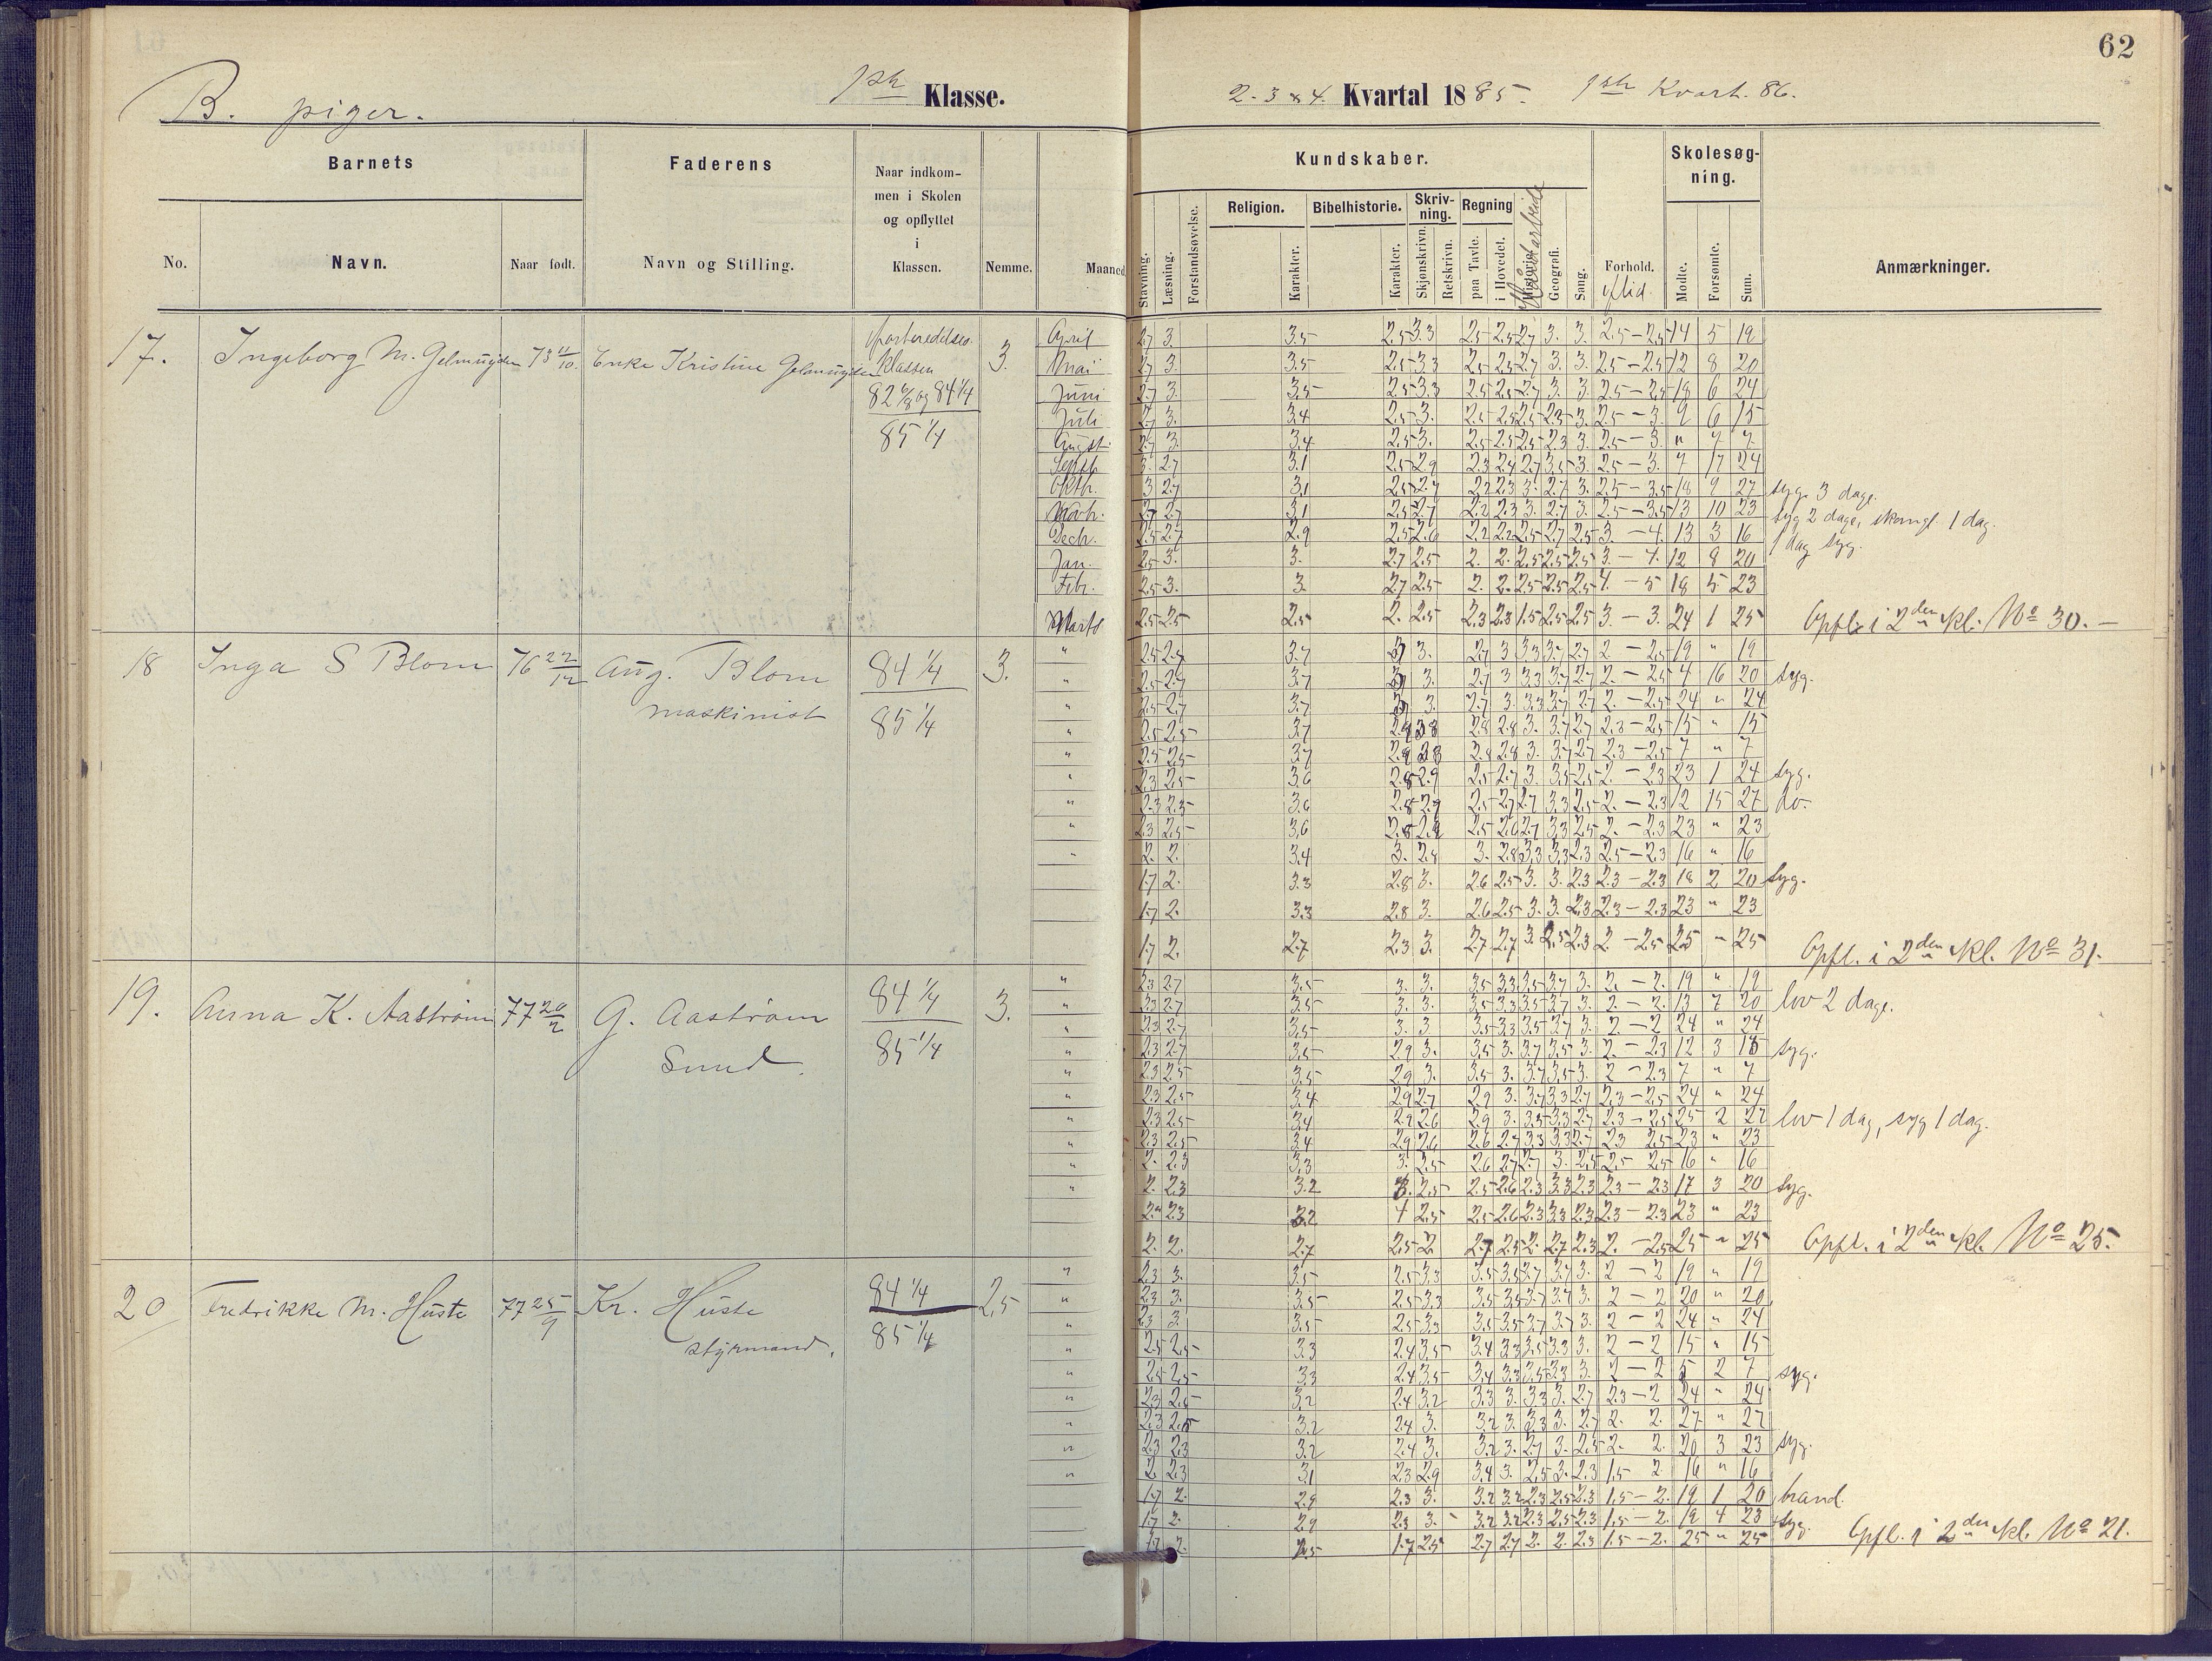 62
B. piger.
1ste Klasse.
2. 3 & 4. Kvartal 1885. 1ste Kvart. 86.
Barnets
Faderens
Naar indkom-
men i Skolen
og opflyttet
i
Klassen.
Kundskaber.
Skolesøg-
ning.
No.
Navn.
Naar født.
Navn og Stilling.
Nemme.
Maaned
Stavning.
Læsning.
Forstandsøvelse.
Religion.
Karakter.
Bibelhistorie.
Karakter.
Skriv-
ning.
Skjønskrivn.
Retskrivn.
Regning
paa Tavle.
i Hovedet.
Haandarbeide
Geografi.
Sang.
Forhold.
Flid
Mødte.
Forsømte.
Sum.
Anmærkninger.
17. Ingeborg M. Gelmuyden 73 11/10. Enke Kristine Gelmuyden
Forberedelses
Klassen
82 6/8 og 84 1/4
85 1/4
3.
April 2.7 3. 3.5 2.5 3.3 2.5 2.5 2.7 3. 3. 2.5 — 2.5 14 5 19
Mai 2.7 3. 3.5 2.5 3.3 2.5 2.5 2.7 3 3. 2.5 — 2.5 12 8 20
Juni 2.7 3. 3.5 2.5 3.3 2.5 2.5 2.7 3. 3. 2.5 — 2.5 18 6 24
Juli 2.7 3. 3.4 2.5 3. 2.5 2.5 2.5 2.3 3. 2.5 — 3. 9 6 15
August 2.7 3. 3.4 2.5 3. 2.5 2.5 2.5 2.3 3. 2.5 — 3. " 7 7
Septb. 3. 2.7 3.1 2.5 2.9 2.3 2.4 2.7 3.5 3. 2.5 — 3. 7 17 24
Oktb. 3 2.7 3.1 2.5 2.7 2.2 2.3 3. 2.7 3. 2.5 — 3.5 18 9 27 syg 3 dage.
Novb. 2.7 2.7 3.1 2.5 2.7 2.2 2.3 3. 2.7 3. 2.5 — 3.5 13 10 23 syg 2 dage, 1 dag.
Decb. 2.5 2.7 2.9 2.5 2.6 2.2 2.2 2.5 2.7 2.5 3. — 4. 13 3 16 1 dag syg.
Jan. 2.5 3. 3. 2.7 2.5 2. 2. 2.5 2.5 2.5 3 — 4. 12 8 20
Feb. 2.5 3. 3 2.7 2.5 2. 2. 2.5 2.5 2.5 4. — 5 18 5 23
Marts 2.5 2.5 2.5 2. 2.5 2.3 2.3 1.5 2.5 2.5 3. — 3. 24 1 25 Opfl. i 2den Kl. No 30. —
18 Inga S Blom 76 22/12 Aug. Blom
maskinist
84 1/4
85 1/4
3.
" 2.5 2.7 3.7 3. 2.7 3 3.3 3.7 2.7 2 — 2.5 19 " 19
" 2.5 2.7 3.7 3. 2.7 3 3.3 3.7 2.7 2. — 2.5 4 16 20 syg.
" 2.5 2.7 3.7 3. 2.7 3. 3.3 3.7 2.7 2. — 2.5 24 " 24
" 2.5 2.5 3.7 2.9 2.8 2.8 2.8 3. 3.7 2.7 2.3 — 2.5 15 " 15
" 2.5 2.5 3.7 2.9 2.8 2.8 2.8 3. 3.7 2.7 2.3 — 2.5 7 " 7
" 2.3 2.5 3.6 2.8 2.9 2.5 2.7 3. 3.5 2.5 2. — 2.3 23 1 24 syg.
" 2.3 2.5 3.6 2.8 2.9 2.5 2.7 2.7 3.3 2.5 2. — 2.3 12 15 27 do.
" 2.3 2.5 3.6 2.8 2.9 2.5 2.6 2.7 3.3 2.5 2. — 2.3 23 " 23
" 2. 2. 3.4 3. 2.8 3. 2.8 3.3 3.3 2.3 2.5 — 2.3 16 " 16
1.7 2. 3.3 2.8 3. 2.6 2.5 3. 3. 2.3 2.3 — 2.3 18 2 20 syg.
1.7 2. 3.3 2.8 3. 2.6 2.5 3. 3. 2.3 2.3 — 2.3 23 " 23
1.7 2. 2.7 2.3 3. 2.7 2.7 3. 2.5 2.3 2. — 2.5 25 " 25 Opfl. i 2den Kl. No 31.
19. Anna K. Aastrøm 77 20/2 G. Aastrøm
Smed.
84 1/4
85 1/4
3.
" 2.3 2.7 3.5 3. 3. 3.5 3.3 3.5 3.7 3. 2. — 2. 19 " 19
" 2.3 2.7 3.5 3. 3. 3.5 3.3 3.5 3.7 3. 2 — 2. 13 7 20 lov 2 dage.
" 2.3 2.7 3.5 3. 3 3.5 3.3 3.5 3.7 3. 2 — 2 24 " 24
" 2.3 2.7 3.5 2.9 3. 3.5 3. 3.7 3.5 3. 2. — 2.3 12 3 15 syg.
" 2.3 2.5 3.5 2.9 3. 3.5 3. 3.7 3.5 3. 2 — 2.3 7 " 7
" 2.3 2.5 3.4 2.9 2.7 2.9 3. 3.7 3.3 2.7 2.3 — 2.5 24 " 24
" 2.3 2.5 3.4 2.9 2.6 2.9 3. 3.5 3.3 2.7 2.3 — 2.5 25 2 27 lov 1 dag, syg 1 dag.
" 2.3 2.5 3.4 2.9 2.6 2.6 2.7 3.3 3.3 2.7 2.3 2.5 23 " 23
" 2. 2.3 3.3 3. 2.5 2.6 2.7 2.7 3. 2.5 2.5 — 2.5 16 " 16
" 2. 2.3 3.2 3. 2.5 2.5 2.6 2.3 3.3 2.3 2.3 — 2.3 17 3 20 syg.
2. 2.3 3.2 4 2.5 2.5 2.6 2.3 3.3 2.3 2.3 — 2.3 23 " 23
2. 2. 2.7 2.5 2. 2.7 2.5 2. 2.7 2.3 2. — 2.5 25 " 25 Opfl. i 2den Kl. No 25.
20 Fredrikke M. Huste 77 25/9 Kr. Huste
styrmand.
84 1/4
85 1/4
2.5
" 2.3 3. 3.5 2.5 3.3 3.5 3.5 2.7 3.7 3. 2 — 2 19 " 19
" 2.3 3. 3.5 2.5 3.3 3.5 3.5 3.7 3.7 3. 2 — 2 20 " 20
" 2.3 3. 3.5 2.5 3.3 3.5 3.5 3.7 3.7 3. 2 — 2 24 " 24
" 2.5 2.5 3.3 2.4 3.5 3.4 3.3 3.5 3.3 3. 2 — 2 15 " 15
" 2.5 2.5 3.3 2.4 3.5 3.4 3.3 3.5 3.3 3. 2 — 2 5 2 7 syg.
" 2.3 2.5 3.2 2.4 3.2 3.3 3. 3.3 3. 2.7 2.3 — 2 24 " 24
" 2.3 2.5 3.2 2.4 3. 3.2 3. 3.3 3. 2.7 2. 2. 27 " 27
" 2.3 2.3 3.2 2.4 3. 3.2 3. 2.7 3. 2.5 2. 2. 20 3 23 syg.
" 2. 2.3 3.1 2.3 2.9 3.4 3. 2.5 3. 2.3 1.5 2 16 " 16
1.7 2. 2.9 2.3 3. 3.2 3.2 2.3 2.5 2.3 1.5 — 2. 19 1 20 brand.
1.7 2. 2.9 2.3 3. 3.2 3.2 2.3 2.5 2.3 1.5 — 2. 19 4 23 syg.
1.7 2. 2.5 1.7 2.5 2.7 2.7 2. 2. 2.3 1.5 — 2. 25 " 25 Opfl. i 2den Kl. No 21.